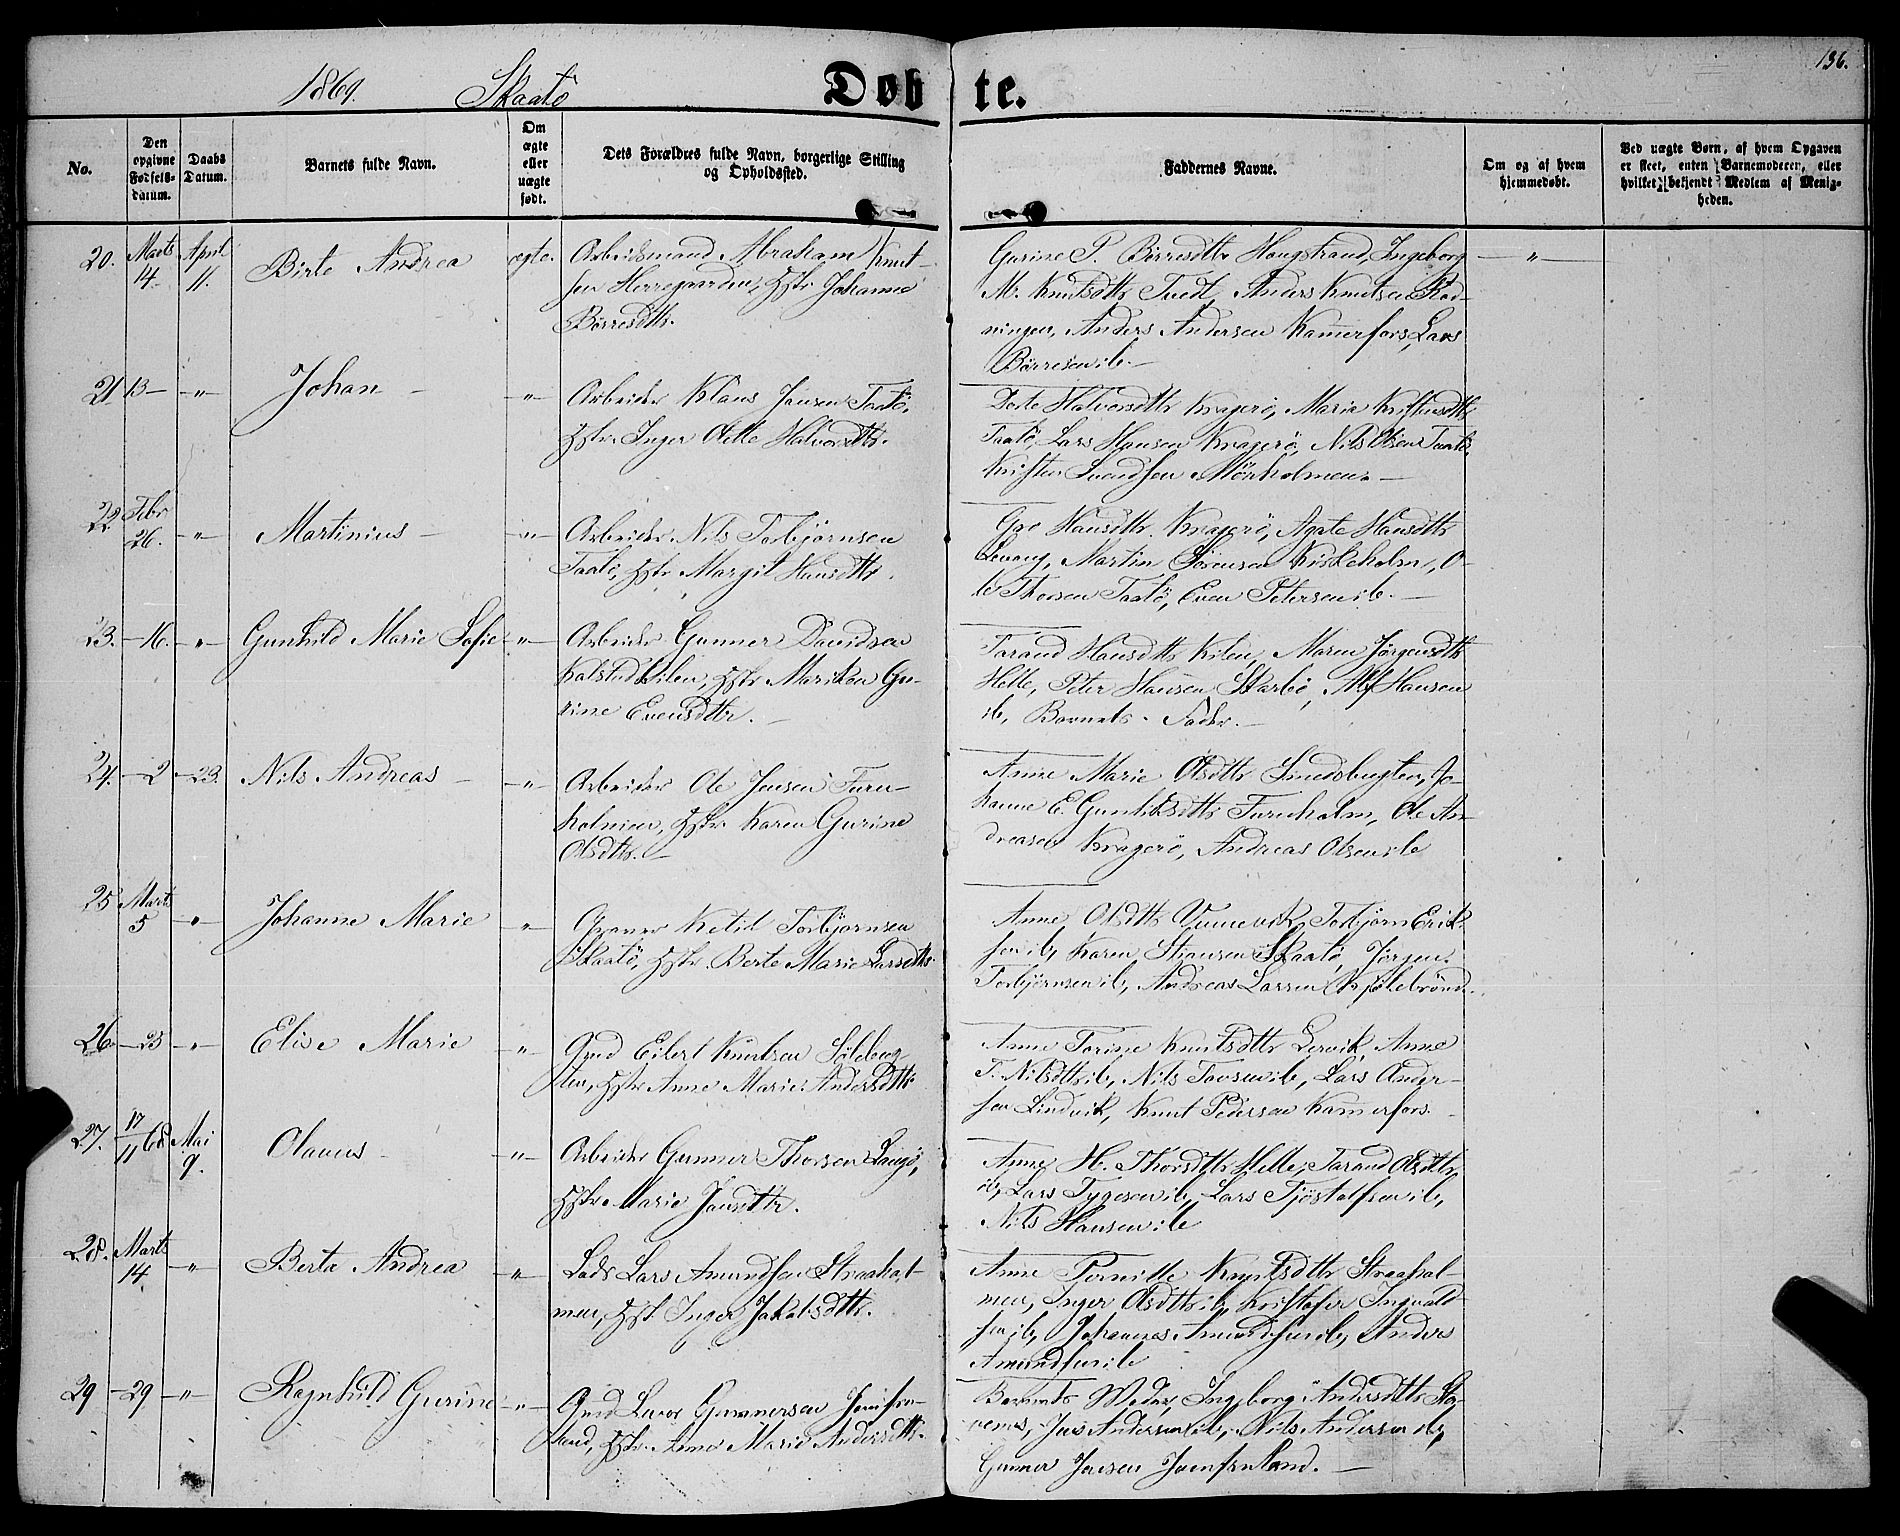 136.
1869. Skaatö
Døbte.
No.
Den opgivne Fødsels-datum.
Daabs Datum.
Barnets fulde Navn.
Om ægte eller uægte født.
Dets Forældres fulde Navn, borgerlige Stilling og Opholdssted.
Faddernes Navne.
Om og af hvem hjemmedøbt.
Ved uægte Børn, af hvem Opgaven er skeet, enten Barnemoderen, eller hvilket bekjendt Medlem af Menigheden.
20. Marts 14. April 11. Birte Andrea ægte. Arbeidsmand Abraham Knut-
sen Herregaarden, Hstr Johanne
Börresdttr.
Gurine P. Börresdttr Haugstrand, Ingeborg
M. Knutsdttr Tvedt, Anders Knutsen Rød-
ningen, Anders Andersen Kamerfors, Lars
Börresen ib. —
— " —
21 13 — " Johan — " Arbeider Klaus Jensen Taatö,
Hstr. Inger Oette Halvorsdttr.
Dorte Halvorsdttr Kragerö, Maria Kristensdttr
Taatö, Lars Hansen Kragerö, Nils Olsen Taatö
Kristen Svendsen Mörholmen. —
22 Febr 26. — " — Martinius — " Arbeider Nils Torbjörnsen
Taatö, Hstr Margit Hansdttr.
Gro Hansdttr Kragerö, Agate Hansdttr
Levang, Martin Sörensen Kirkeholm, O-
le Thorsen Taatö, Even Petersen ib. —
23. — 16. — " — Gunhild Marie Sofie — " — Arbeider Gunner Davidsen
Kalstadkilen, Hstr Marikon Gu-
rine Evensdttr. —
Tarand Hansdttr Kilen, Maren Jörgensdttr
Helle, Peter Hansen Skarbo, Alf Hansen
ib, Barnets Fader. —
24. — 2 — 23. Nils Andreas — " — Arbeider Ole Jensen Furu-
holmen, Hstr. Karen Gurine
Olsdttr. —
Anne Marie Olsdttr Smedsbugten, Jo-
hanne E. Gunhildsdttr Furuholm, Ole An-
dreasen Kragerö, Andreas Olsen ib
25 Marts 5 — " — Johanne Marie " Ketil Torbjörnsen
Skaatö, Hstr. Berte Marie Larsdttr.
Anne Olsdttr Vinnevik, Torbjörn Erik-
sen ib, Karen Stiansen Skaatö, Jörgen
Torbjörnsen ib, Andreas Larsen Kjölebrönd.
26. — 25 — " — Elise Marie — " — Gmd Eilert Knutsen Sölebog-
ten, Hstr Anne Marie Andersdttr
Anne Torine Knutsdttr Lervik, Anne
T. Nilsdttr ib, Nils Tovsen ib, Lars Ander-
sen Lindvik, Knut Pedersen Kamerfors.
27. 17/11 68 Mai 9. Olavus — " — Arbeider Gunner Thorsen Langö,
Hstr Marie Jansdttr.
Anne H. Thorsdttr Helle, Tarand Olsdttr
ib, Lars Tygesen ib, Lars Tjöstolfsen ib,
Nils Hansen ib
28. Marts 14. — " — Berta Andrea — " — Lods Lars Amundsen Straahol-
men, Hstr. Inger Jakobsdttr.
Anne Pernille Knutsdttr Straahol-
men, Inger Olsdttr ib, Kristofer Ingvald-
sen ib, Johannes Amundsen ib, Anders
Amundsen ib
29 — 29 — " — Ragnhild Gurine — " — Gmd Levor Gunnersen Jomfru-
land, Hstr. Anne Marie Andersdttr.
Barnets Moder, Ingeborg Andersdttr Sta-
vernes, Jens Andersen ib, Nils Andersen ib,
Gunner Jensen Jomfruland. —